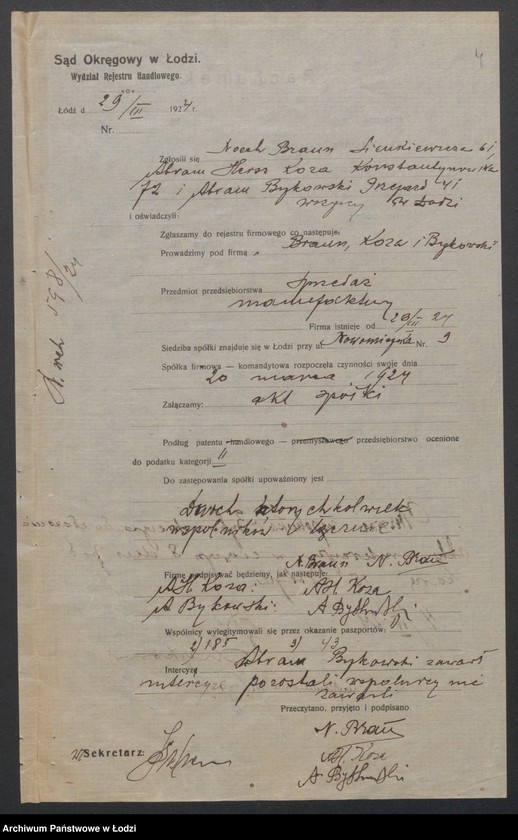 4
Sąd Okręgowy w Łodzi.
Wydział Rejestru Handlowego.
Łódź d. 29/III 1924 r.
Nr.
Zgłosili się Noech Braun Sienkiewicza 61,
Abram Hersz Koza Konstantynowska
72 i Abram Bykowski 41
wszyscy w Łodzi
i oświadczyli:
Zgłaszamy do rejestru firmowego co następuje:
Prowadzimy pod firmą „Braun, Koza i Bykowski
Przedmiot przedsiębiorstwa sprzedaż
manufaktury
Firma istnieje od 20/III 24
Siedziba spółki znajduje się w Łodzi przy ul. Nowomiejska Nr. 3
Spółka firmowa — komandytowa rozpoczęła czynności swoje dnia
20 marca 1924
Załączamy: akt spółki
Podług patentu handlowego — przemysłowego przedsiębiorstwo ocenione
do podatku kategorji II
Do zastępowania spółki upoważniony jest
Dwóch którychkolwiek
wspólników łącznie
Firmę podpisywać będziemy, jak następuje: N. Braun N. Braun
AH Koza: AH Koza
A Bykowski: A Bykowski
Wspólnicy wylegitymowali się przez okazanie paszportów:
2) 185 3) 43
Intercyzę Abram Bykowski zawarł
intercyzę pozostali wspólnicy nie
zawarli
Przeczytano, przyjęto i podpisano
N. Braun
AH. Koza
A Bykowski
Sekretarz:
A. rej 598/24
Archiwum Państwowe w Łodzi